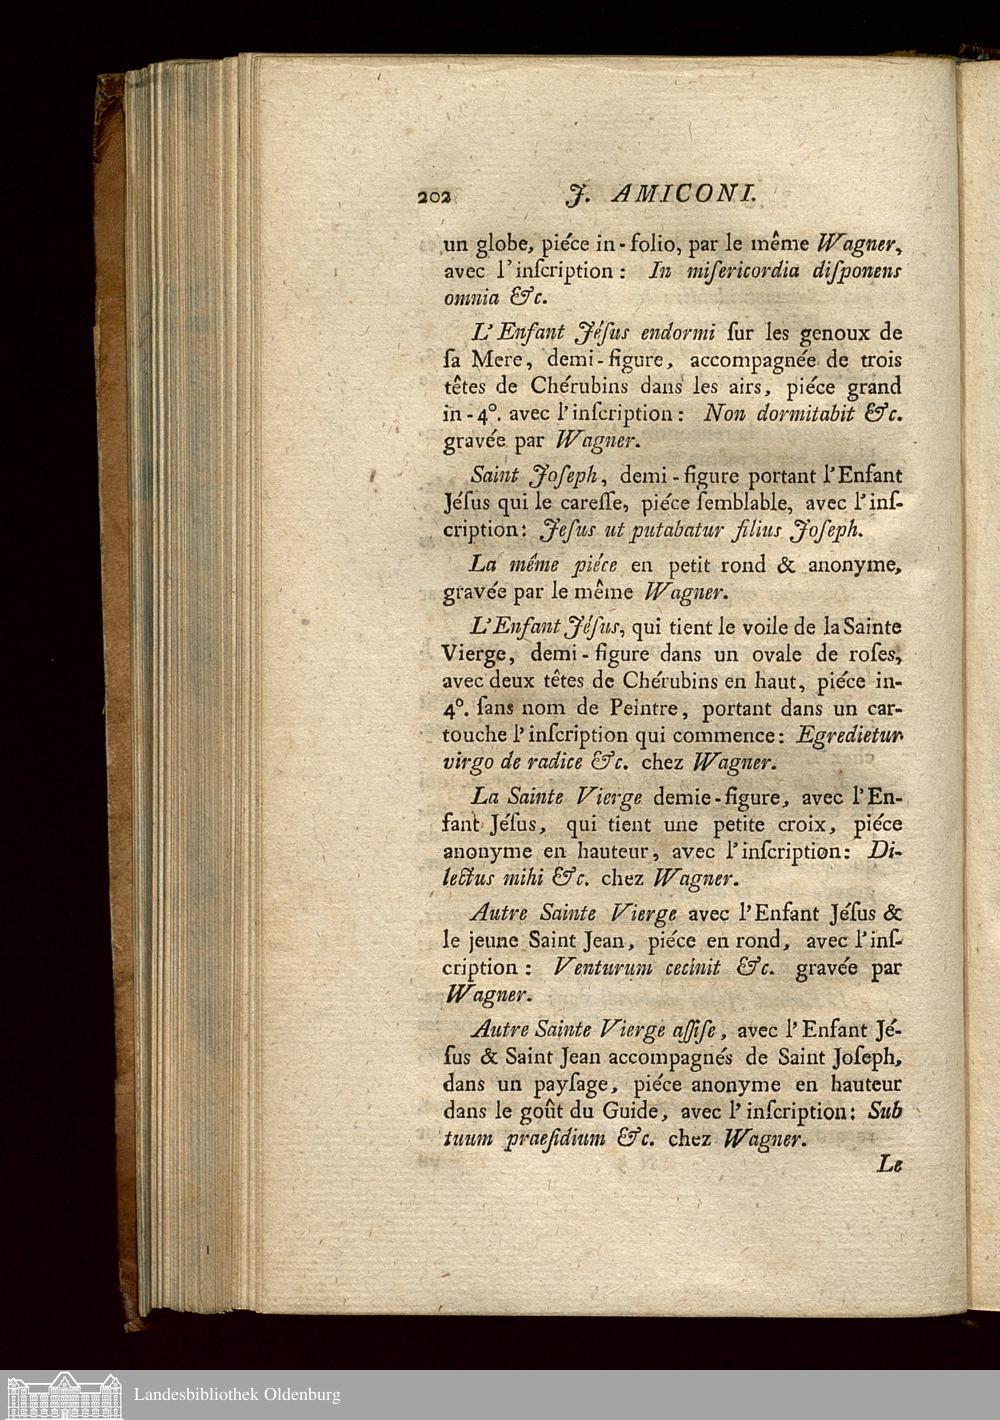 202 J. AMICONI.
un globe, piéce in-folio, par le même Wagner,
avec l'inſcription: In miſericordia diſponens
omnia &c.
L'Enfant Jéſus endormi ſur les genoux de
ſa Mere, demi-figure, accompagnée de trois
têtes de Chérubins dans les airs, piéce grand
in-4°. avec l'inſcription: Non dormitabit &c.
gravée par Wagner.
Saint Joſeph, demi-figure portant l'Enfant
Jéſus qui le careſſe, piéce ſemblable, avec l'inſ-
cription: Jeſus ut putabatur filius Joſeph.
La même piéce en petit rond & anonyme,
gravée par le même Wagner.
L'Enfant Jéſus, qui tient le voile de la Sainte
Vierge, demi-figure dans un ovale de roſes,
avec deux têtes de Chérubins en haut, piéce in-
4°. ſans nom de Peintre, portant dans un car-
touche l'inſcription qui commence: Egredietur
virgo de radice &c. chez Wagner.
La Sainte Vierge demie-figure, avec l'En-
fant Jéſus, qui tient une petite croix, piéce
anonyme en hauteur, avec l'inſcription: Di-
lectus mihi &c. chez Wagner.
Autre Sainte Vierge avec l'Enfant Jéſus &
le jeune Saint Jean, piéce en rond, avec l'inſ-
cription: Venturum cecinit &c. gravée par
Wagner.
Autre Sainte Vierge aſſiſe, avec l'Enfant Jé-
ſus & Saint Jean accompagnés de Saint Joſeph,
dans un payſage, piéce anonyme en hauteur
dans le goût du Guide, avec l'inſcription: Sub
tuum praeſidium &c. chez Wagner.
Le
Landesbibliothek Oldenburg